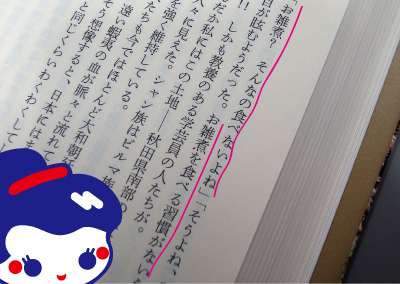 「お雑煮？　そんなの食べないよね」「そうよね、
目が眩むようだった。お雑煮を食べる習慣がない
!!　しかも教養のある学芸員の人たちが。
だか私にはこの土地――秋田県南部の
人々に見えた。シャン族はビルマ
を強く維持している。
たちも今ではほとんど大和朝
遠い蝦夷の血が脈々と流れて
そう想像すると、日本にはま
と同じくらいわくわくして